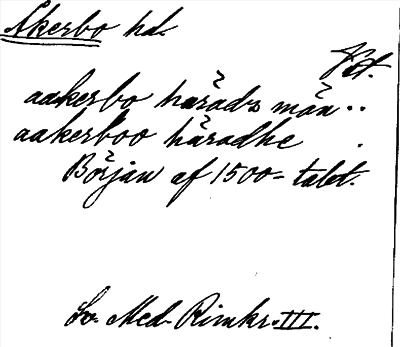 Åkerbo hd.
Vstm.
aakerbo häradz män ..
aakerboo häradhe .
Början af 1500=talet.
Sv. Med. Rimkr. III.